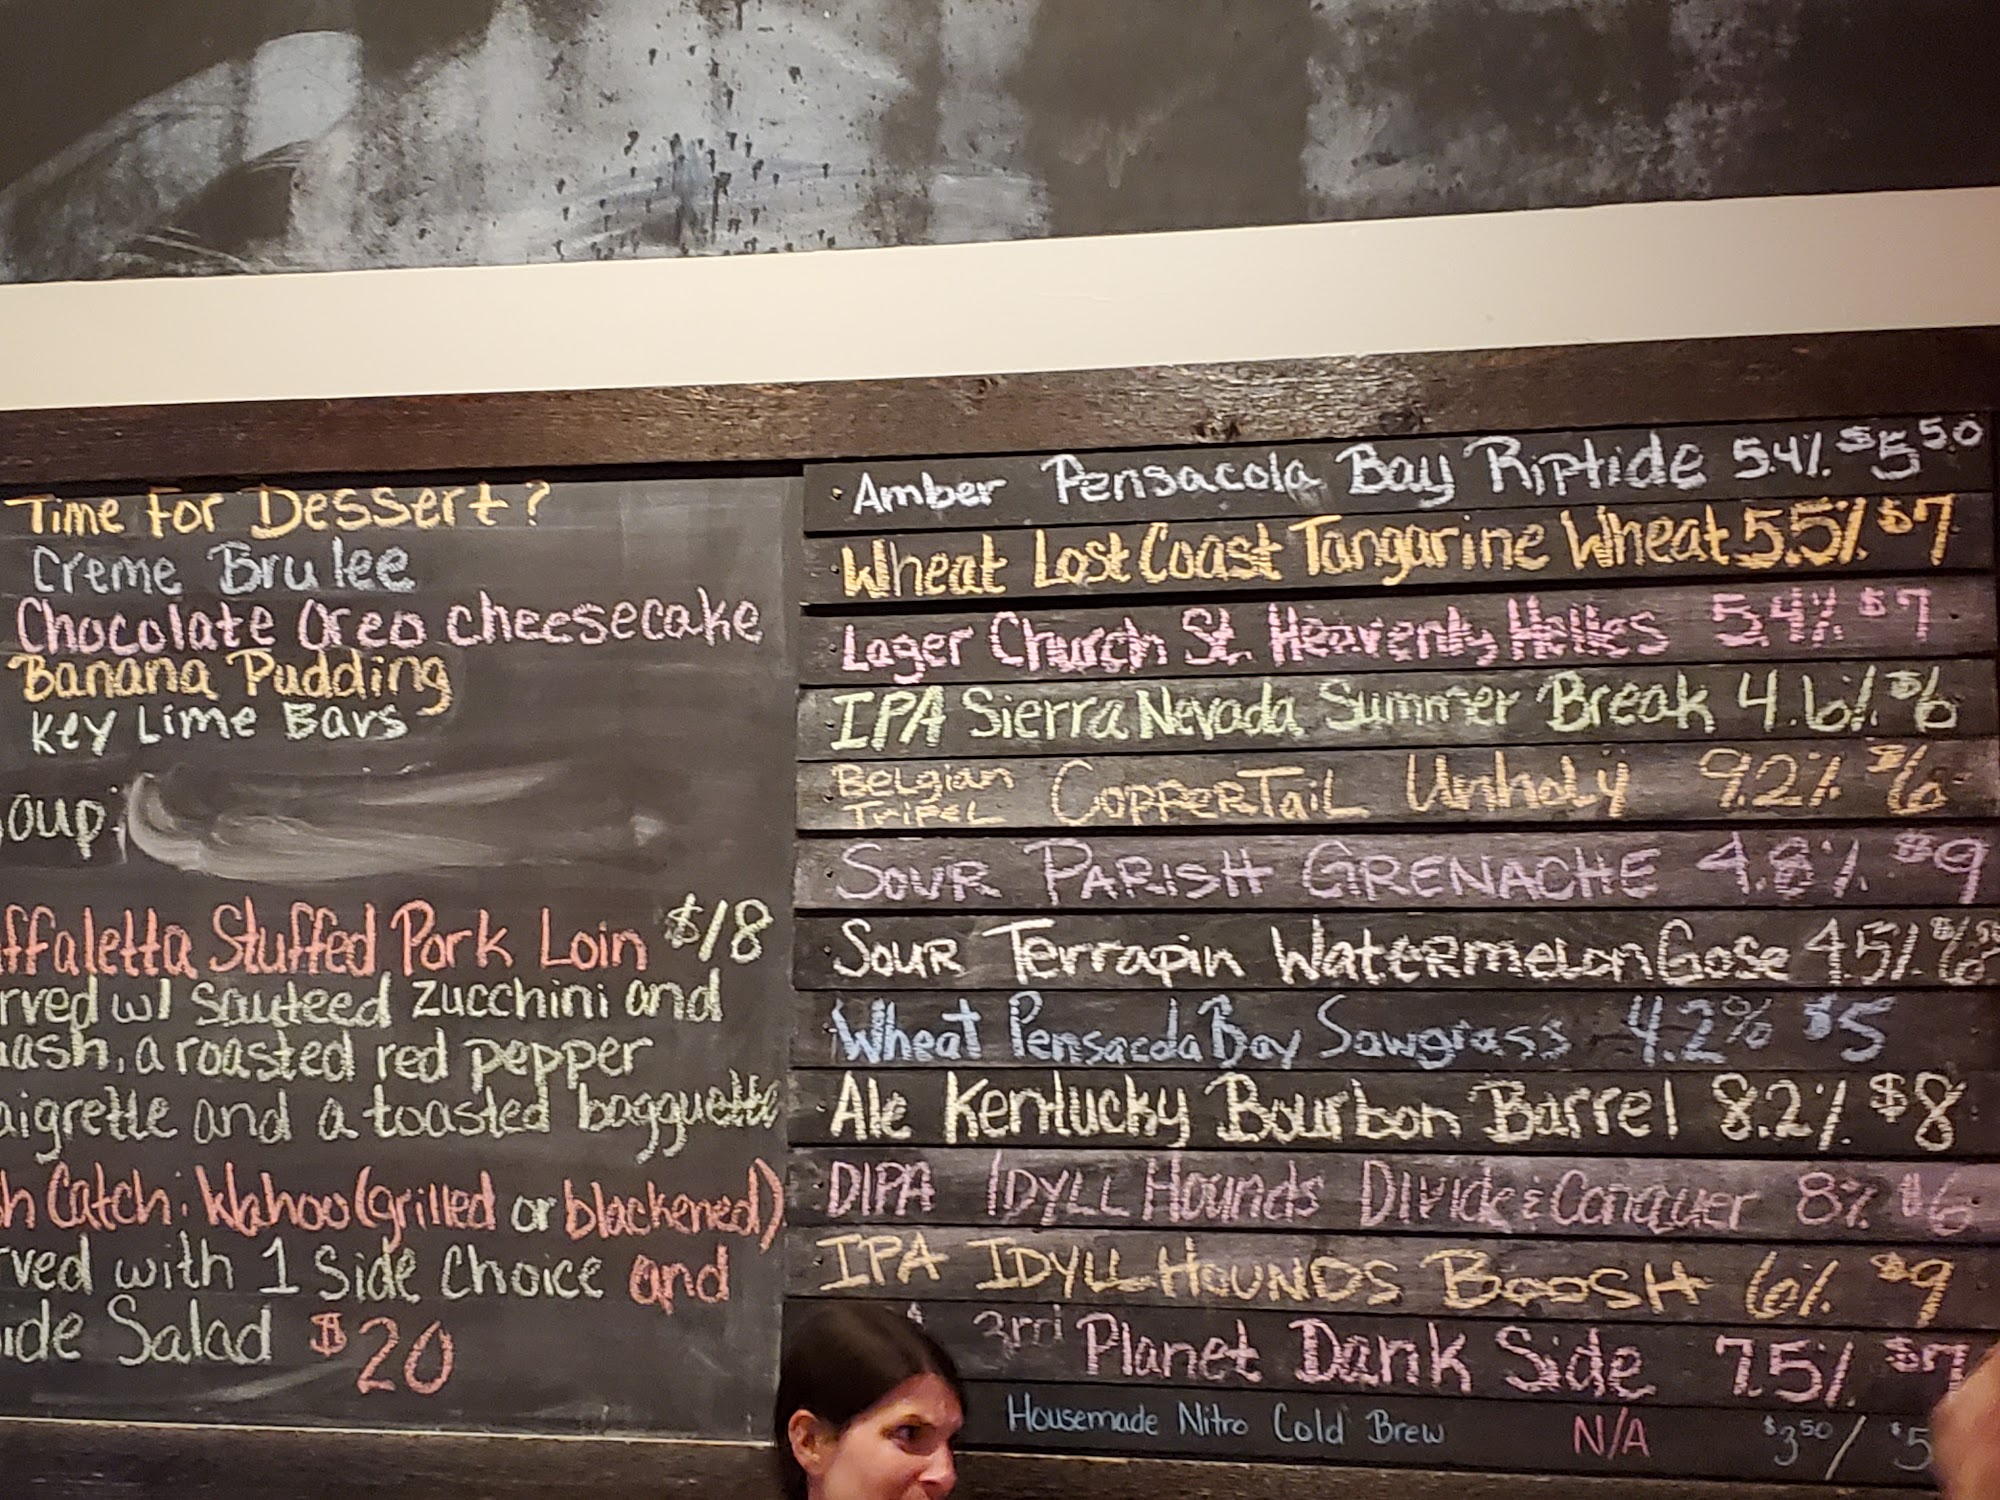 Time For Dessert?
Creme Brulee
Chocolate Oreo Cheesecake
Banana Pudding
Key Lime Bars
oup:
ffaletta Stuffed Pork Loin $18
rved w/ Sauteed Zucchini and
uash, a roasted red pepper
aigrette and a toasted bagguette
h Catch: Wahoo (grilled or blackened)
rved with 1 Side Choice and
ide Salad $20
Amber Pensacola Bay Riptide 5.4% $5.50
Wheat Lost Coast Tangarine Wheat 5.5% $7
Lager Church St. Heavenly Helles 5.4% $7
IPA Sierra Nevada Summer Break 4.6% $6
Belgian Tripel CopperTail Unholy 9.2% $6
Sour Parish Grenache 4.8% $9
Sour Terrapin Watermelon Gose 4.5% $6.50
Wheat Pensacola Bay Sawgrass 4.2% $5
Ale Kentucky Bourbon Barrel 8.2% $8
DIPA Idyll Hounds Divide & Conquer 8% $6
IPA Idyll Hounds Boosh 6% $9
3rd Planet Dark Side 7.5% $7
Housemade Nitro Cold Brew N/A $3.50/$5